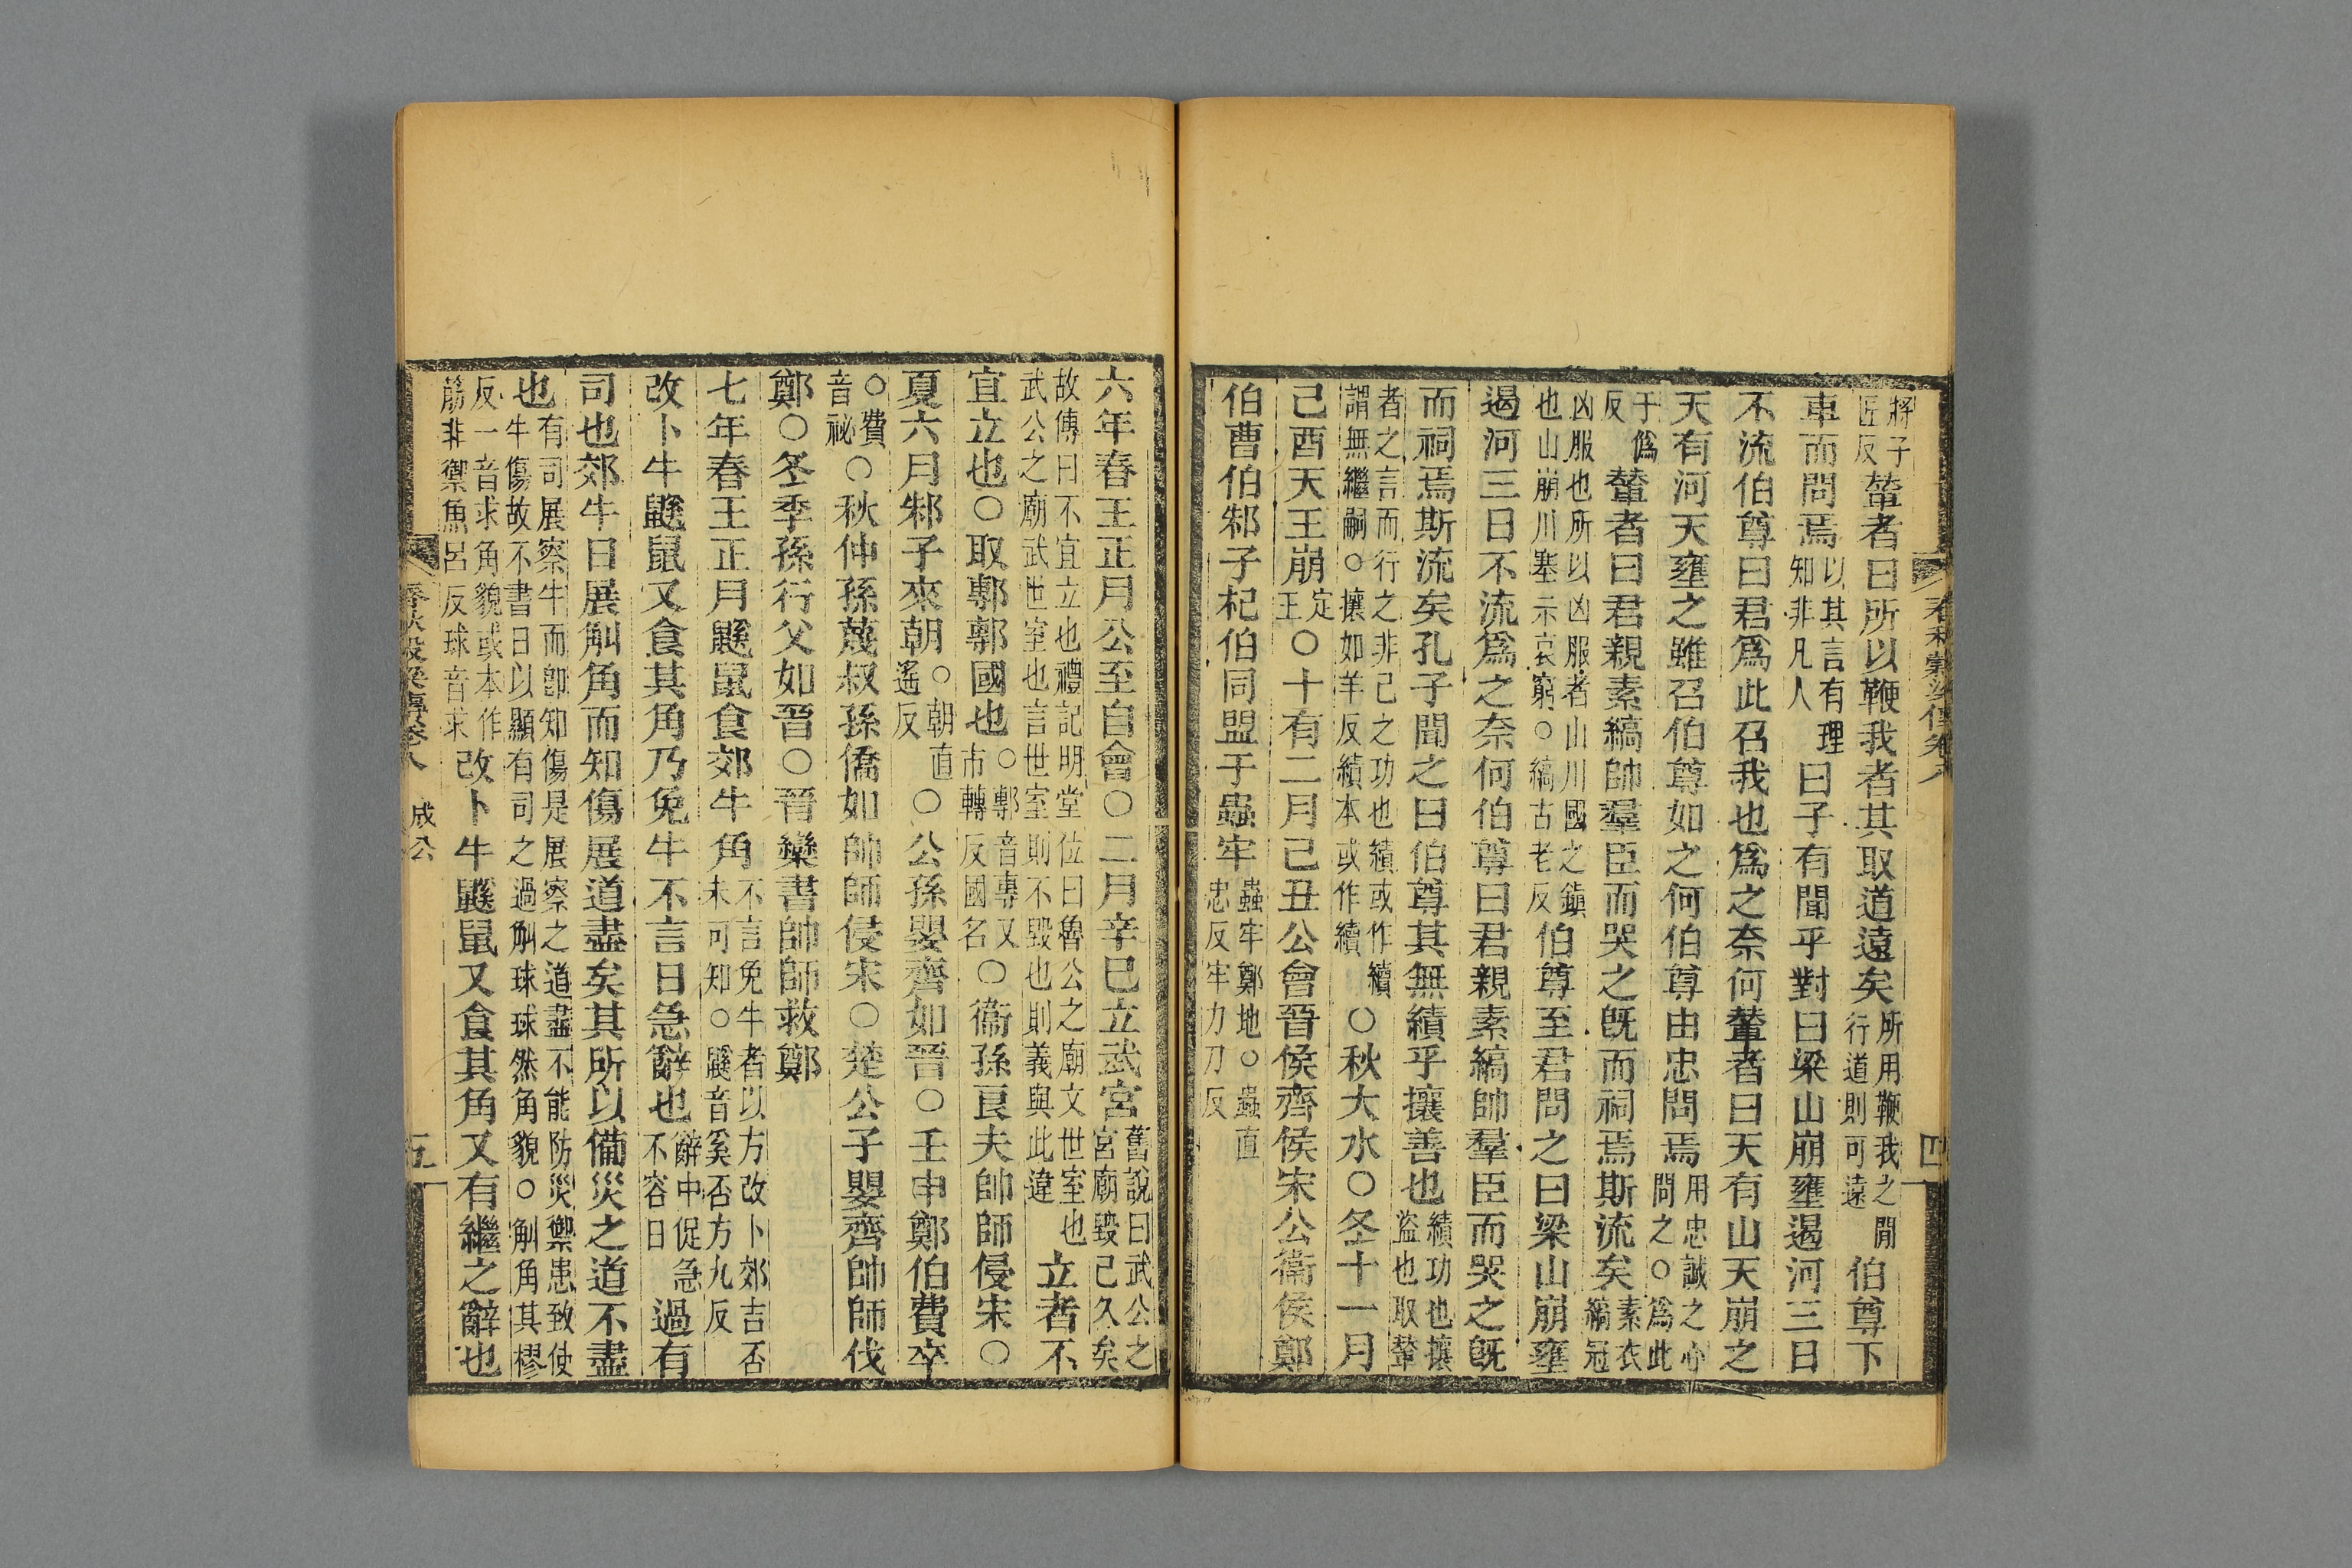 將子匠反輦者曰所以鞭我者其取道遠矣所用鞭我之閒行道則可遠伯尊下
車而問焉以其言有理知非凡人曰子有聞乎對曰梁山崩壅遏河三日
不流伯尊曰君爲此召我也爲之奈何輦者曰天有山天崩之
天有河天壅之雖召伯尊如之何伯尊由忠問焉用忠誠之心問之○爲此
于僞反輦者曰君親素縞帥羣臣而哭之旣而祠焉斯流矣素衣縞冠
凶服也所以凶服者山川國之鎮也山崩川塞示哀窮○縞古老反伯尊至君問之曰梁山崩壅
遏河三日不流爲之奈何伯尊曰君親素縞帥羣臣而哭之旣
而祠焉斯流矣孔子聞之曰伯尊其無績乎攘善也績功也攘盜也取輦
者之言而行之非己之功也績或作續謂無繼嗣○攘如羊反績本或作續○秋大水○冬十一月
己酉天王崩定王○十有二月己丑公會晉侯齊侯宋公衞侯鄭
伯曹伯邾子杞伯同盟于蟲牢蟲牢鄭地○蟲直忠反牢力刀反
春秋穀梁傳卷八
四
六年春王正月公至自會○二月辛巳立武宮舊說曰武公之宮廟毀已久矣
故傳曰不宜立也禮記明堂位曰魯公之廟文世室也武公之廟武世室也言世室則不毀也則義與此違立者不
宜立也○取鄟鄟國也○鄟音專又市轉反國名○衞孫良夫帥師侵宋○
夏六月邾子來朝○朝直遙反○公孫嬰齊如晉○壬申鄭伯費卒
○費音祕○秋仲孫蔑叔孫僑如帥師侵宋○楚公子嬰齊帥師伐
鄭○冬季孫行父如晉○晉欒書帥師救鄭
七年春王正月鼷鼠食郊牛角不言免牛者以方改卜郊吉否未可知○鼷音奚否方九反
改卜牛鼷鼠又食其角乃免牛不言日急辭也辭中促急不容日過有
司也郊牛日展觓角而知傷展道盡矣其所以備災之道不盡
也有司展察牛而卽知傷是展察之道盡不能防災禦患致使牛傷故不書日以顯有司之過觓球球然角貌○觓角其樛
反一音求角貌或本作筋非禦魚呂反球音求改卜牛鼷鼠又食其角又有繼之辭也
春秋穀梁傳卷八
成公
五